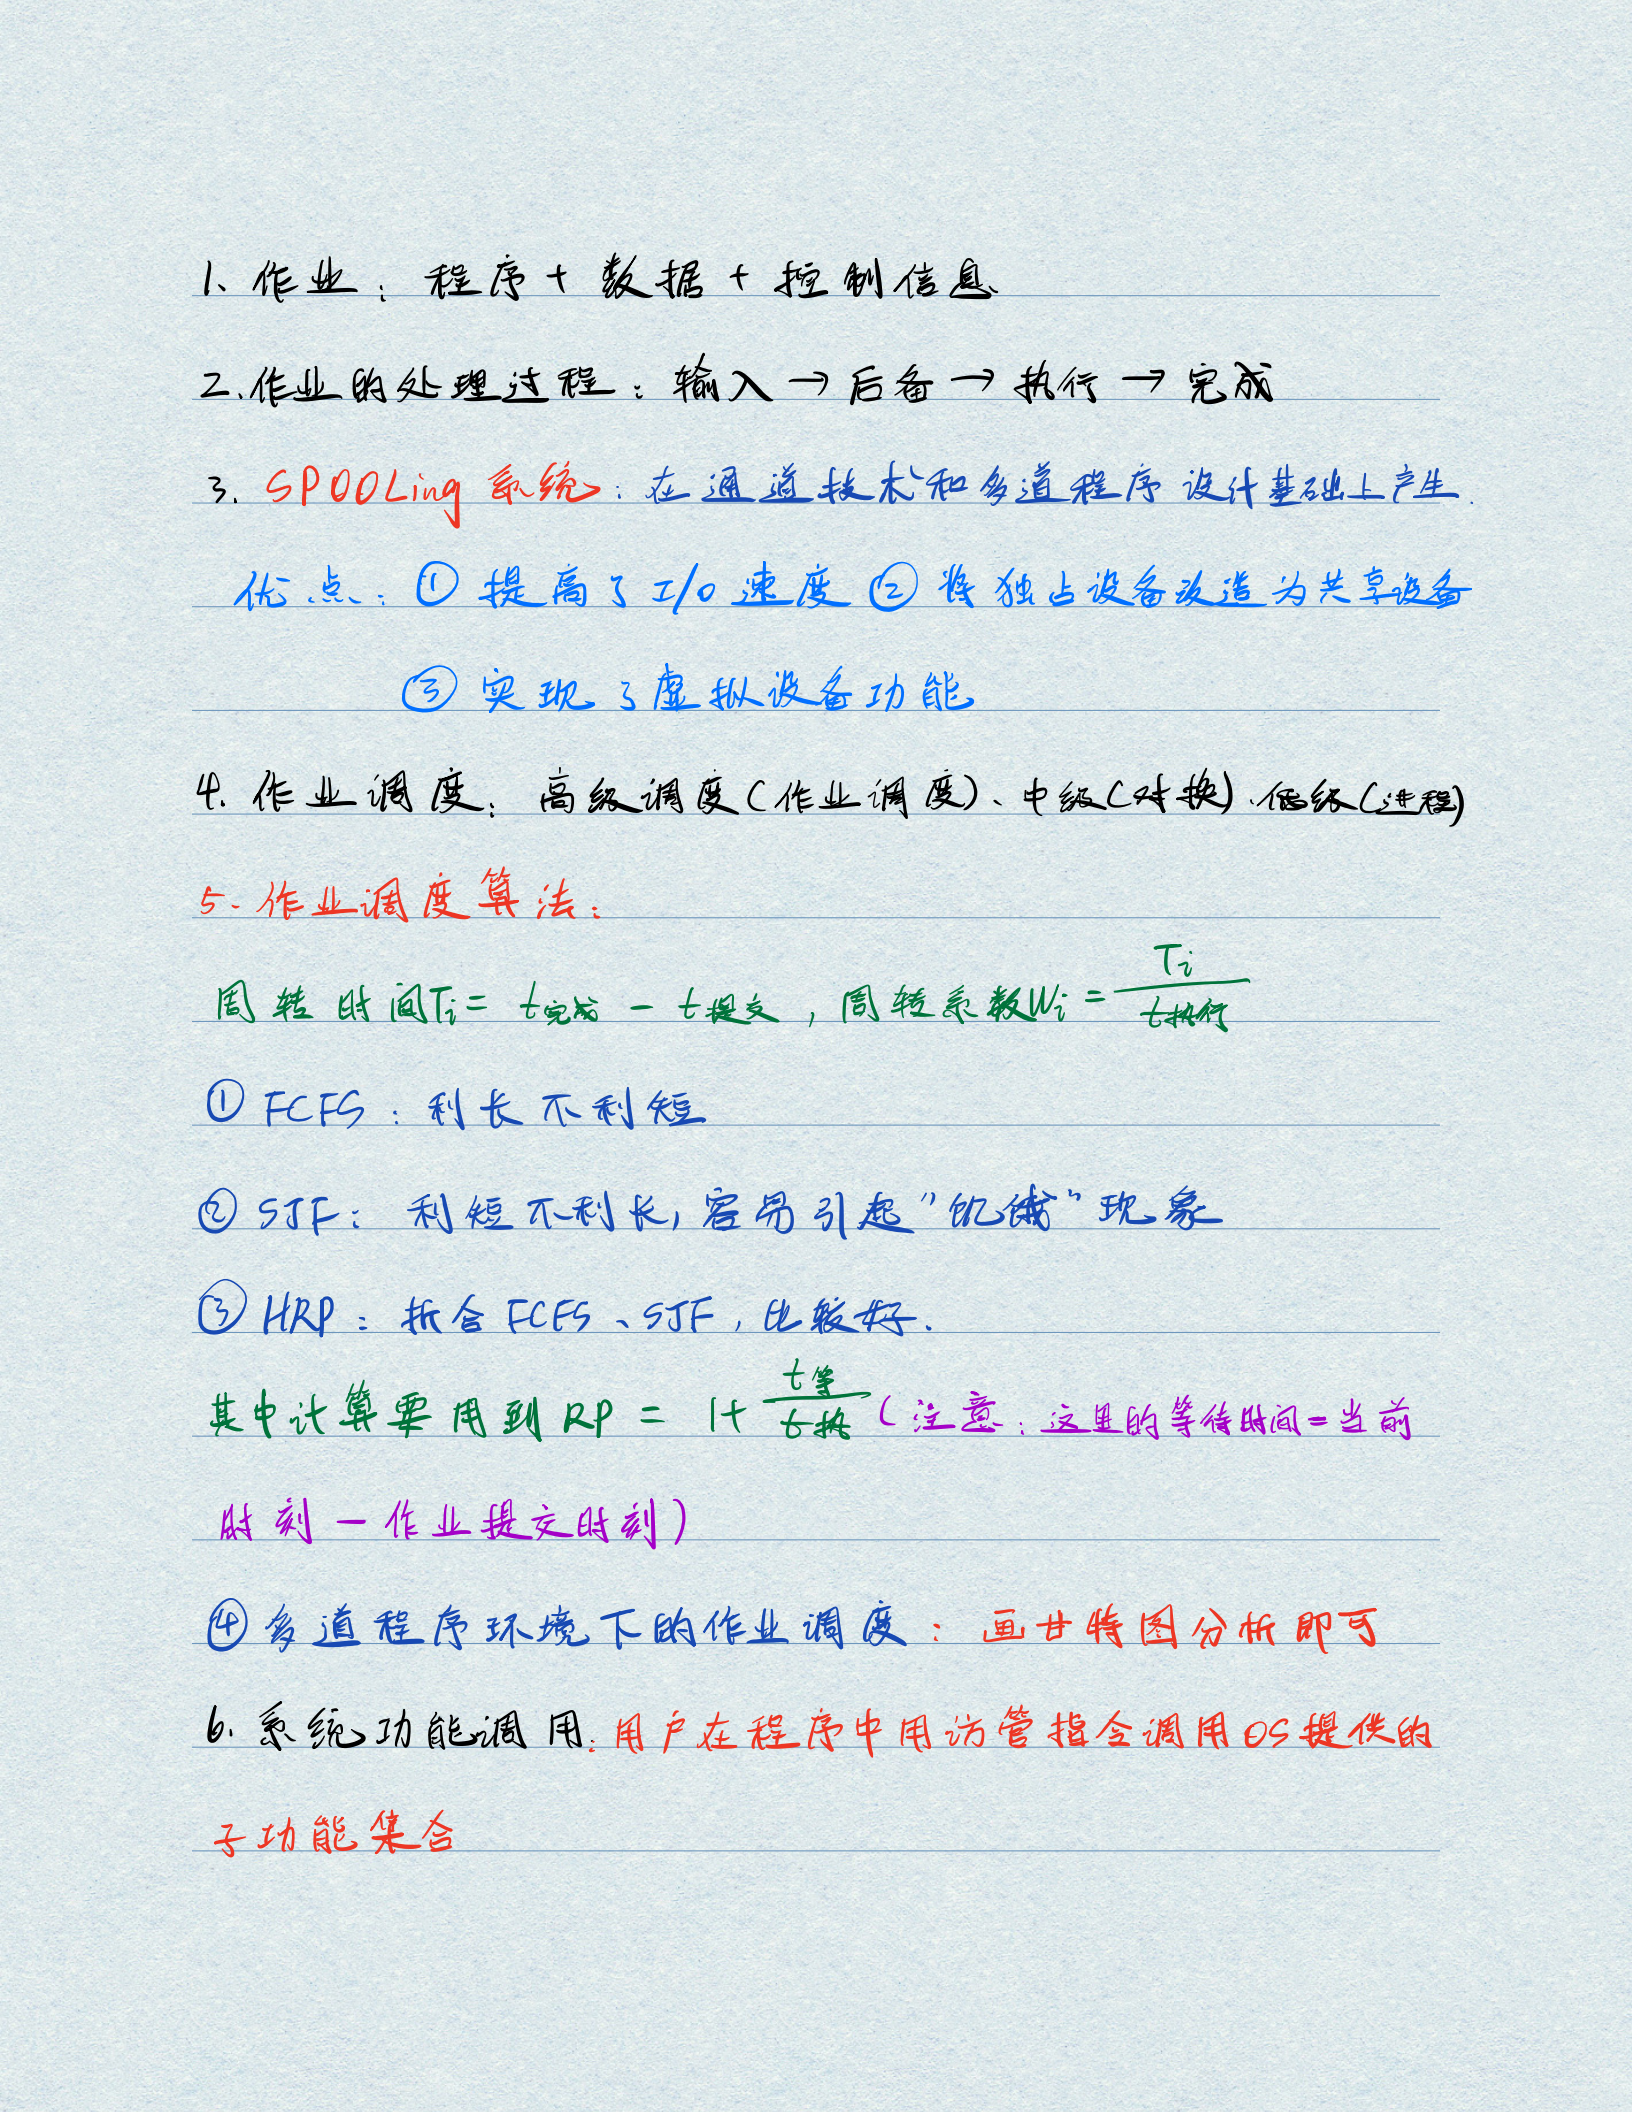 1、作业：程序+数据+控制信息
2.作业的处理过程：输入→后备→执行→完成
3. SPOOLing系统：在通道技术和多道程序设计基础上产生.
优点：①提高了I/O速度②将独占设备改造为共享设备
③实现了虚拟设备功能
4.作业调度：高级调度(作业调度)、中级(对换)、低级(进程)
5.作业调度算法：
周转时间Ti=t完成-t提交,周转系数Wi=Ti/t执行
①FCFS：利长不利短
②SJF：利短不利长,容易引起"饥饿"现象
③HRP：折合FCFS、SJF,比较好.
其中计算要用到RP=1+t等/t执(注意：这里的等待时间=当前
时刻-作业提交时刻)
④多道程序环境下的作业调度：画甘特图分析即可
6.系统功能调用:用户在程序中用访管指令调用OS提供的
子功能集合